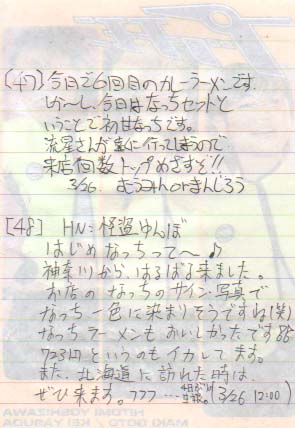 [47] 今日で6回目のカレーラーメンです。
しか〜し、今日はなっちセットと
いうことで初なっちです。
流星さんが先に行ってしまうので
来店回数トップめざすぞ!!
3/26. むうみんorまんじろう
[48] HN:怪盗ゆんぼ
はじめなっちって〜♪
神奈川から、はるばる来ました。
お店のなっちのサイン・写真で
なっち一色に染まりそうですね(笑)
なっちラーメンもおいしかったです
723円というのもイカしてます。
また、北海道に訪れた時は、
ぜひ来ます。フフフ…
(3/26 12:00)
HITOMI YOSHIZAWA
MAKI GOTO KEI YASUDA